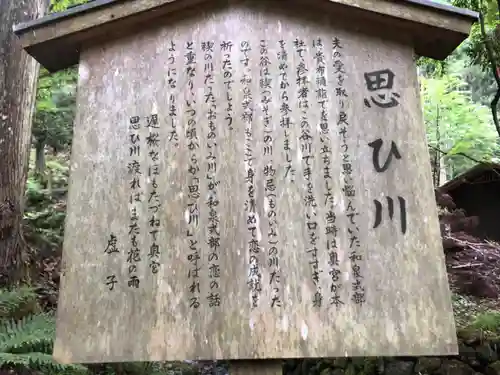 思ひ川
夫の愛を取り戻そうと思い悩んでいた和泉式部
は、貴布禰詣でを思い立ちました。当時は奥宮が本
社で、参拝者はこの谷川で手を洗い口をすすぎ、身
を清めてから参拝しました。
この谷は禊（みそぎ）の川、物忌（ものいみ）の川だった
のです。和泉式部もここで身を清めて恋の成就を
祈ったのでしょう。
禊の川だった「おものいみ川」が和泉式部の恋の話
と重なり、いつの頃からか「思ひ川」と呼ばれる
ようになりました。
遅桜なほもたづねて奥宮
思ひ川渡ればまたも花の雨
虚子